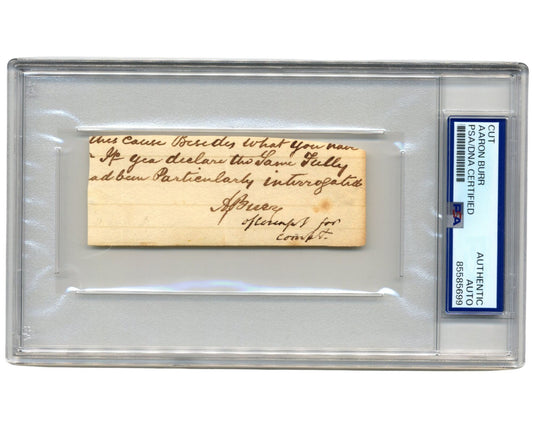 this cause Besides what you have
If yea declare the Same Fully
had been Particularly interrogated
ABurr
of Counsel for
compt.
CUT
AARON BURR
PSA/DNA CERTIFIED
PSA
AUTHENTIC
AUTO
85585699